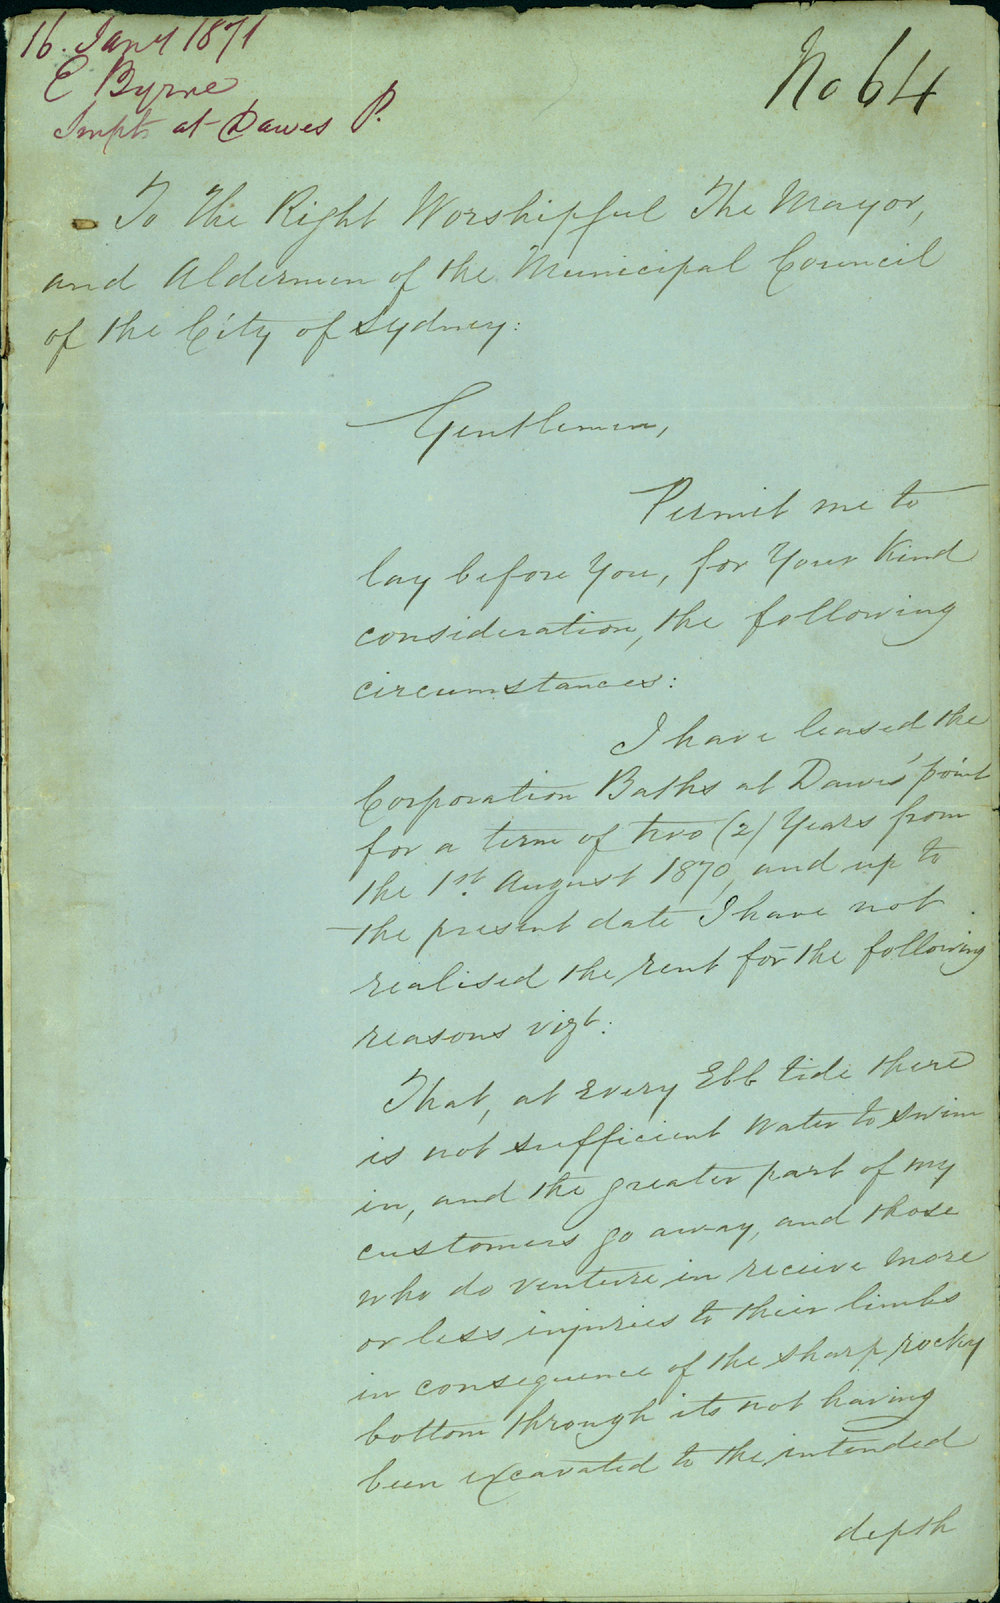 16. Jany 1871
E Byrne
Impts at Dawes P.
No 64
To The Right Worshipful The Mayor,
and Aldermen of the Municipal Council
of the City of Sydney:
Gentlemen,
Permit me to
lay before You, for Your Kind
consideration, the following
circumstances:
I have leased the
Corporation Baths at Dawes' point
for a term of two (2) Years from
the 1st. August 1870, and up to
the present date I have not
realised the rent for the following
reasons vizt:
That, at Every Ebb tide there
is not sufficient Water to swim
in, and the greater part of my
customers go away, and those
who do venture in receive more
or less injuries to their limbs
in consequence of the sharp rocky
bottom through its not having
been excavated to the intended
depth